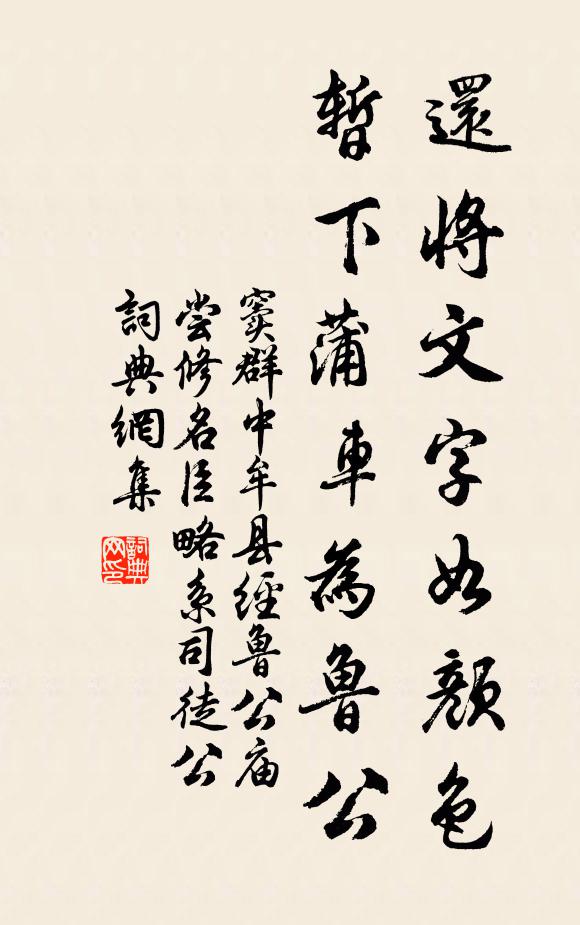 還將文字如顏色
暫下蒲車為魯公
竇群中牟县經魯公庙
尝修名臣略系司徒公
詞典網集
詞典
网印